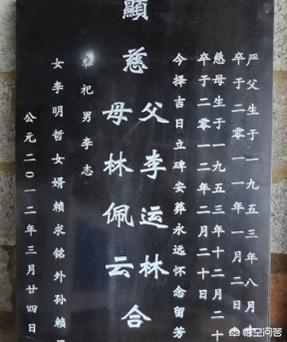 严父生于一九五三年八月
卒于二零一一年一月二日
慈母生于一九五三年十二月二十
卒于二零一二年二月二十日
今择吉日立碑安葬永远怀念留芳
顯
慈
父李运林
母林佩云合
奉祀男李志
女李明哲女婿賴求銘外孙賴
公元二〇一二年三月廿四日
悟空问答